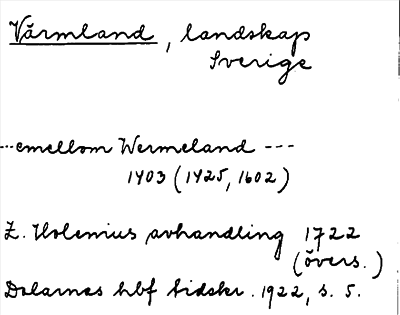 Värmland, landskap
Sverige
---emellom Wermeland ---
1403 (1425, 1602)
Z. Holenius avhandling 1722
(övers.)
Dalarnas hbf tidskr. 1922, s. 5.